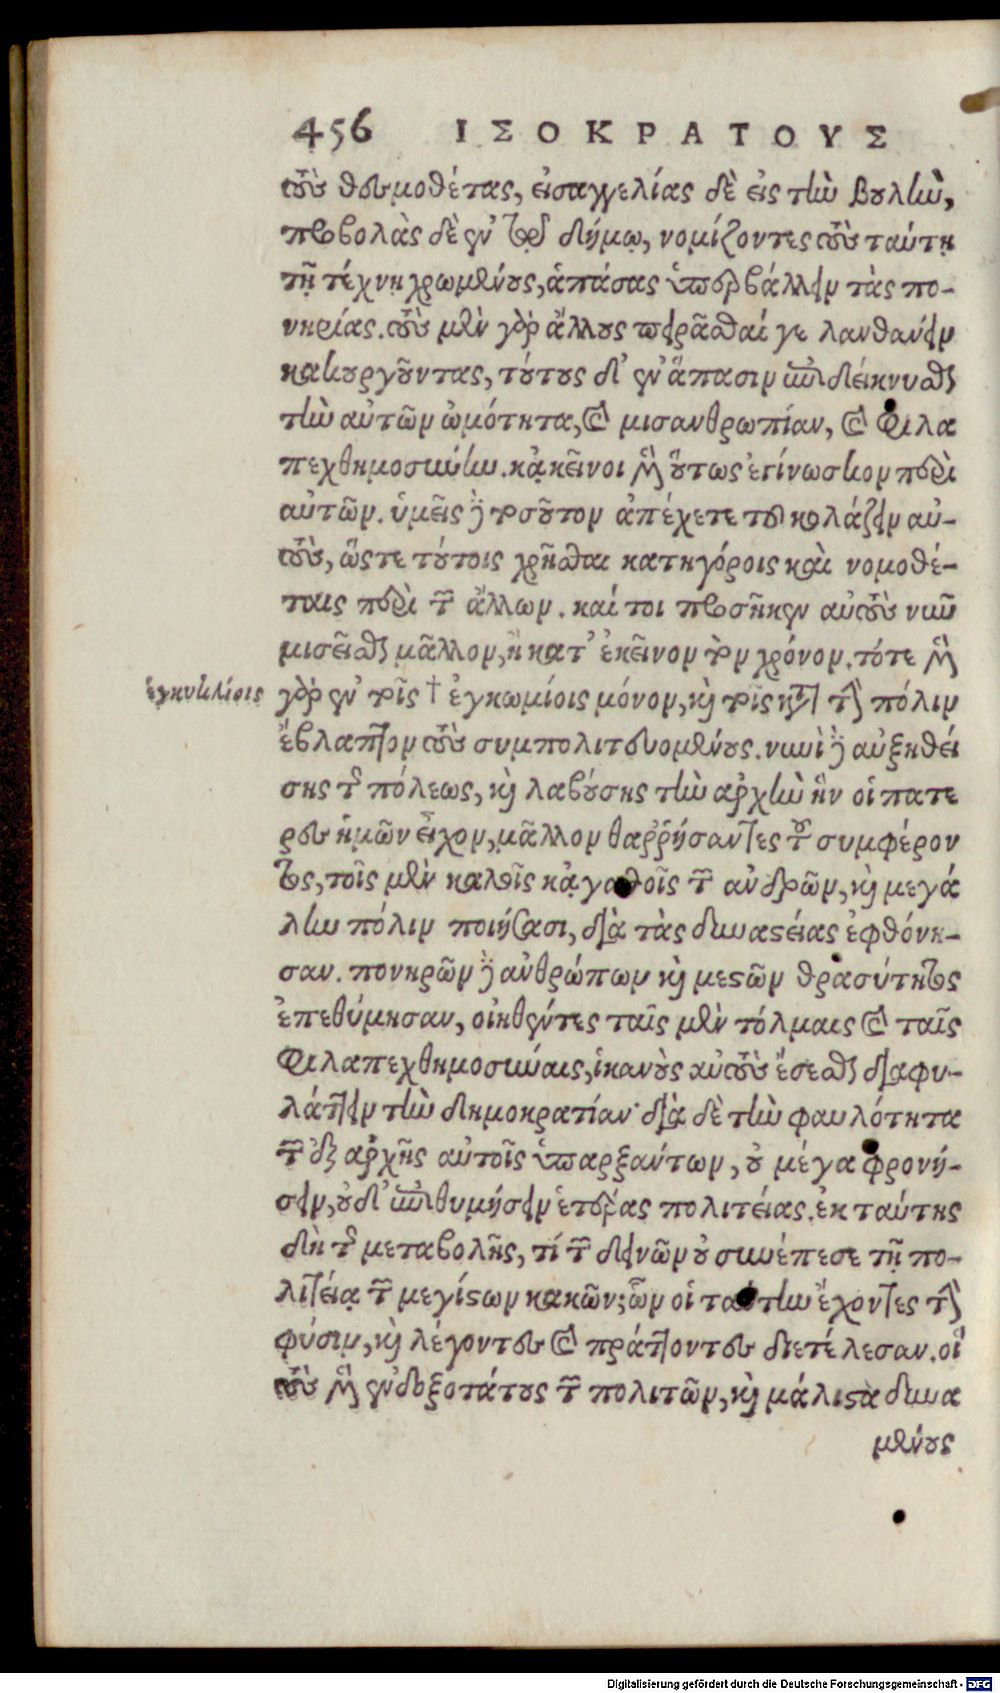 456 ΙΣΟΚΡΑΤΟΥΣ
τοὺς θεσμοθέτας, εἰσαγγελίας δὲ εἰς τὴν βουλὴν,
προβολὰς δὲ ἐν τῷ δήμῳ, νομίζοντες τοὺς ταύτῃ
τῇ τέχνῃ χρωμένους, ἁπάσας ὑπερβάλλειν τὰς πο-
νηρίας. τοὺς μὲν γὰρ ἄλλους πειρᾶσθαί γε λανθάνειν
κακουργοῦντας, τούτους δ' ἐν ἅπασιν ἐπιδείκνυσθαι
τὴν αὑτῶν ὠμότητα, καὶ μισανθρωπίαν, καὶ φιλα
πεχθημοσύνην. κᾀκεῖνοι μὲν οὕτως ἐγίνωσκον περὶ
αὐτῶν. ὑμεῖς δὲ τοσοῦτον ἀπέχετε τοῦ κολάζειν αὐ-
τοὺς, ὥστε τούτοις χρῆσθαι κατηγόροις καὶ νομοθέ-
ταις περὶ τῶν ἄλλων. καί τοι προσῆκεν αὐτοὺς νῦν
μισεῖσθαι μᾶλλον, ἢ κατ' ἐκεῖνον τὸν χρόνον. τότε μὲν
ἐγκυκλίοις
γὰρ ἐν τοῖς † ἐγκωμίοις μόνον, καὶ τοῖς κατὰ τὴν πόλιν
ἔβλαπτον τοὺς συμπολιτευομένους. νυνὶ δὲ αὐξηθεί
σης τῆς πόλεως, καὶ λαβούσης τὴν ἀρχὴν ἣν οἱ πατέ
ρες ἡμῶν εἶχον, μᾶλλον θαῤῥήσαντες τοῦ συμφέρον
τος, τοῖς μὲν καλοῖς κᾀγαθοῖς τῶν ἀνδρῶν, καὶ μεγά
λην πόλιν ποιήσασι, διὰ τὰς δυναστείας ἐφθόνη-
σαν. πονηρῶν δὲ ἀνθρώπων καὶ μεστῶν θρασύτητος
ἐπεθύμησαν, οἰηθέντες ταῖς μὲν τόλμαις καὶ ταῖς
φιλαπεχθημοσύναις, ἱκανοὺς αὐτοὺς ἔσεσθαι διαφυ-
λάττειν τὴν δημοκρατίαν· διὰ δὲ τὴν φαυλότητα
τῶν ἐξ ἀρχῆς αὐτοῖς ὑπαρξάντων, οὐ μέγα φρονή-
σειν, οὐδ' ἐπιθυμήσειν ἑτέρας πολιτείας. ἐκ ταύτης
δὴ τῆς μεταβολῆς, τί τῶν δεινῶν οὐ συνέπεσε τῇ πο-
λιτείᾳ τῶν μεγίστων κακῶν; ὧν οἱ ταύτην ἔχοντες τὴν
φύσιν, καὶ λέγοντες καὶ πράττοντες διετέλεσαν. οἳ
τοὺς μὲν ἐνδοξοτάτους τῶν πολιτῶν, καὶ μάλιστα δυνα
μένους
Digitalisierung gefördert durch die Deutsche Forschungsgemeinschaft - DFG